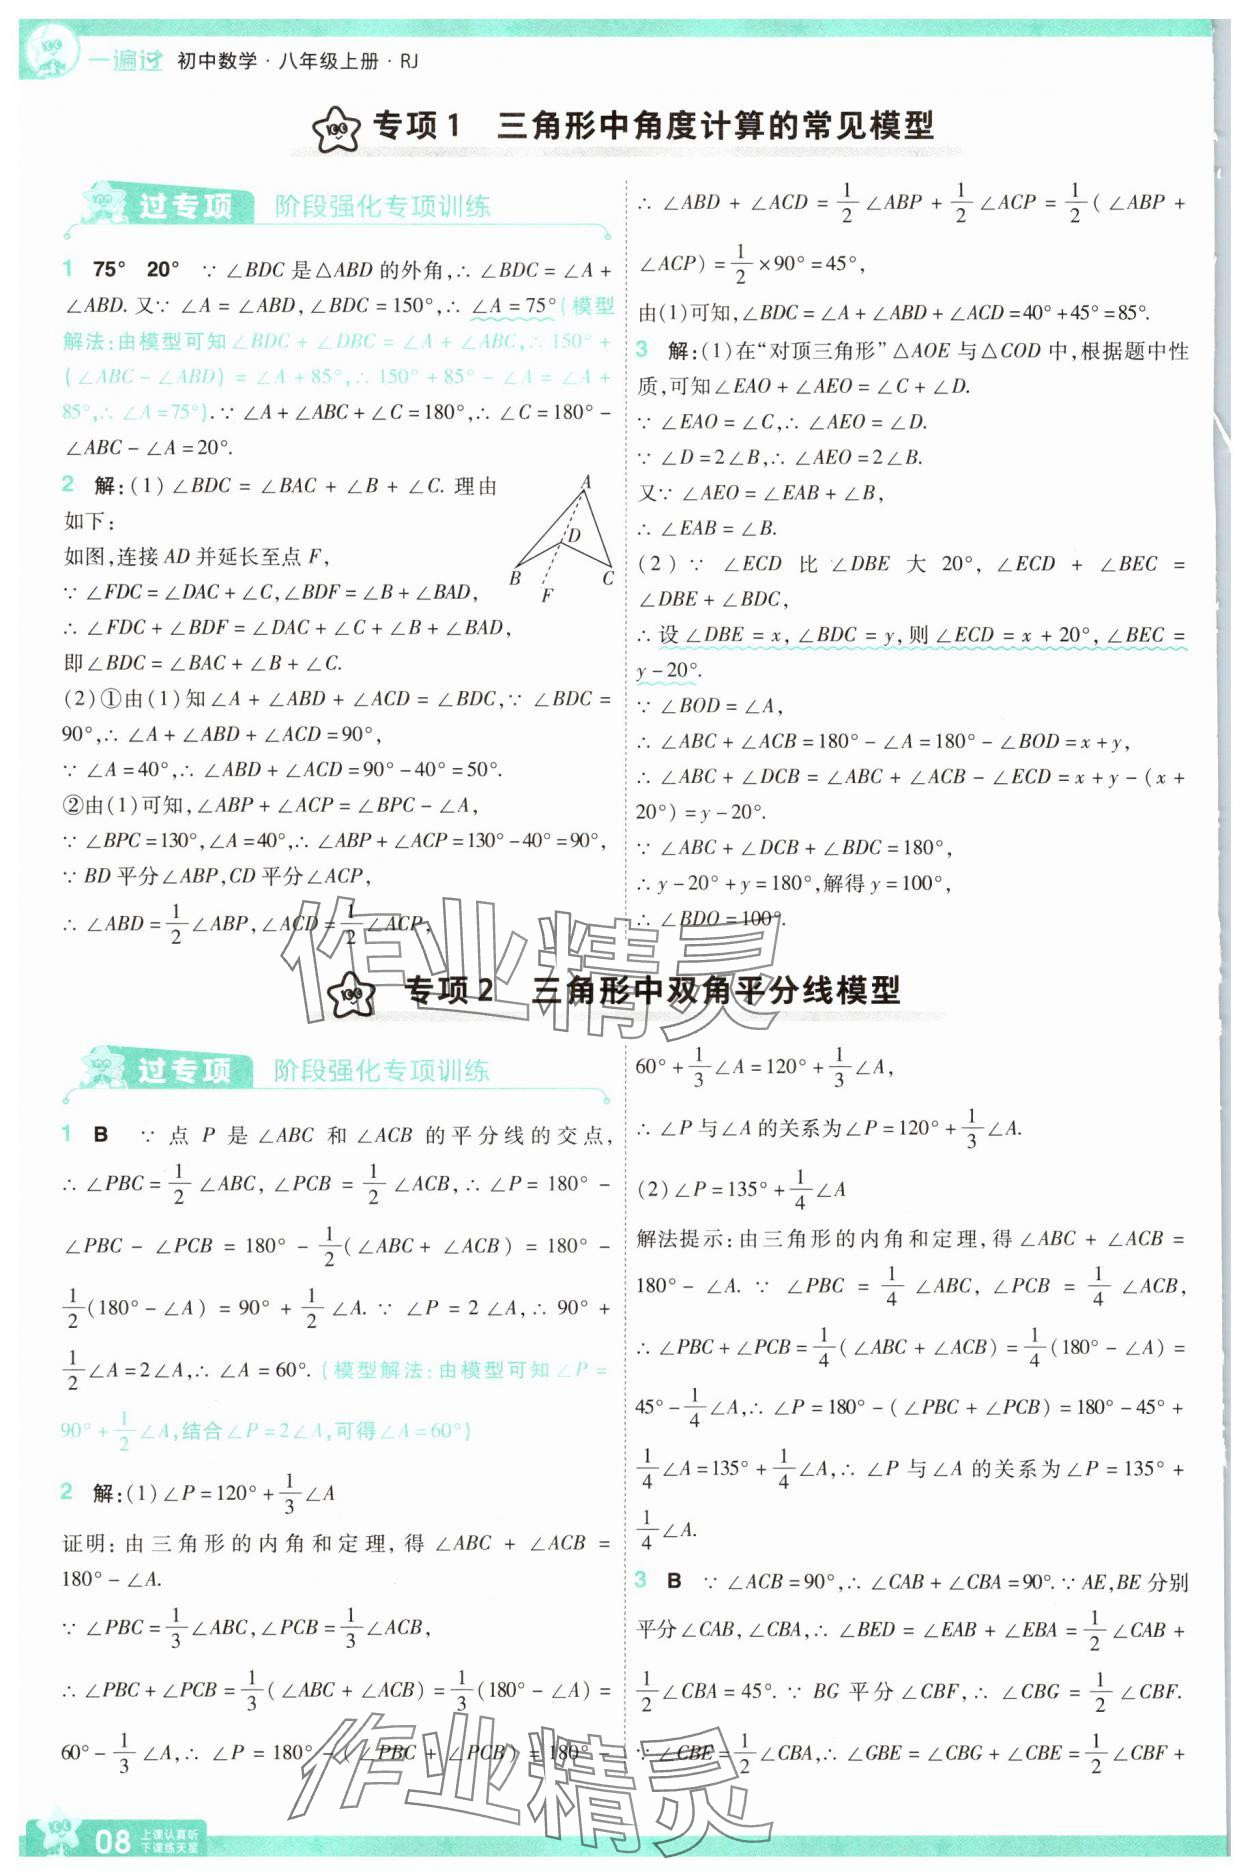 一遍过 初中数学·八年级上册·RJ
专项1 三角形中角度计算的常见模型
过专项 阶段强化专项训练
1 75° 20° ∵∠BDC是△ABD的外角,∴∠BDC=∠A+
∠ABD.又∵∠A=∠ABD,∠BDC=150°,∴∠A=75°(模型
解法:由模型可知∠BDC+∠DBC=∠A+∠ABC,∴150°+
(∠ABC-∠ABD)=∠A+85°,∴150°+85°-∠A=∠A+
85°,∴∠A=75°).∵∠A+∠ABC+∠C=180°,∴∠C=180°-
∠ABC-∠A=20°.
2 解:(1)∠BDC=∠BAC+∠B+∠C.理由
如下:
如图,连接AD并延长至点F,
∵∠FDC=∠DAC+∠C,∠BDF=∠B+∠BAD,
∴∠FDC+∠BDF=∠DAC+∠C+∠B+∠BAD,
即∠BDC=∠BAC+∠B+∠C.
A
D
B
C
F
(2)①由(1)知∠A+∠ABD+∠ACD=∠BDC,∵∠BDC=
90°,∴∠A+∠ABD+∠ACD=90°,
∵∠A=40°,∴∠ABD+∠ACD=90°-40°=50°.
②由(1)可知,∠ABP+∠ACP=∠BPC-∠A,
∵∠BPC=130°,∠A=40°,∴∠ABP+∠ACP=130°-40°=90°,
∵BD平分∠ABP,CD平分∠ACP,
∴∠ABD=1/2∠ABP,∠ACD=1/2∠ACP,
∴∠ABD+∠ACD=1/2∠ABP+1/2∠ACP=1/2(∠ABP+
∠ACP)=1/2×90°=45°,
由(1)可知,∠BDC=∠A+∠ABD+∠ACD=40°+45°=85°.
3 解:(1)在“对顶三角形”△AOE与△COD中,根据题中性
质,可知∠EAO+∠AEO=∠C+∠D.
∵∠EAO=∠C,∴∠AEO=∠D.
∵∠D=2∠B,∴∠AEO=2∠B.
又∵∠AEO=∠EAB+∠B,
∴∠EAB=∠B.
(2)∵∠ECD比∠DBE大20°,∠ECD+∠BEC=
∠DBE+∠BDC,
∴设∠DBE=x,∠BDC=y,则∠ECD=x+20°,∠BEC=
y-20°.
∵∠BOD=∠A,
∴∠ABC+∠ACB=180°-∠A=180°-∠BOD=x+y,
∴∠ABC+∠DCB=∠ABC+∠ACB-∠ECD=x+y-(x+
20°)=y-20°.
∵∠ABC+∠DCB+∠BDC=180°,
∴y-20°+y=180°,解得y=100°,
∴∠BDO=100°.
作业精灵
专项2 三角形中双角平分线模型
过专项 阶段强化专项训练
1 B ∵点P是∠ABC和∠ACB的平分线的交点,
∴∠PBC=1/2∠ABC,∠PCB=1/2∠ACB,∴∠P=180°-
∠PBC-∠PCB=180°-1/2(∠ABC+∠ACB)=180°-
1/2(180°-∠A)=90°+1/2∠A.∵∠P=2∠A,∴90°+
1/2∠A=2∠A,∴∠A=60°.(模型解法:由模型可知∠P=
90°+1/2∠A,结合∠P=2∠A,可得∠A=60°)
2 解:(1)∠P=120°+1/3∠A
证明:由三角形的内角和定理,得∠ABC+∠ACB=
180°-∠A.
∵∠PBC=1/3∠ABC,∠PCB=1/3∠ACB,
∴∠PBC+∠PCB=1/3(∠ABC+∠ACB)=1/3(180°-∠A)=
60°-1/3∠A,∴∠P=180°-(∠PBC+∠PCB)=180°-
60°+1/3∠A=120°+1/3∠A,
∴∠P与∠A的关系为∠P=120°+1/3∠A.
(2)∠P=135°+1/4∠A
解法提示:由三角形的内角和定理,得∠ABC+∠ACB=
180°-∠A.∵∠PBC=1/4∠ABC,∠PCB=1/4∠ACB,
∴∠PBC+∠PCB=1/4(∠ABC+∠ACB)=1/4(180°-∠A)=
45°-1/4∠A,∴∠P=180°-(∠PBC+∠PCB)=180°-45°+
1/4∠A=135°+1/4∠A,∴∠P与∠A的关系为∠P=135°+
1/4∠A.
3 B ∵∠ACB=90°,∴∠CAB+∠CBA=90°.∵AE,BE分别
平分∠CAB,∠CBA,∴∠BED=∠EAB+∠EBA=1/2∠CAB+
1/2∠CBA=45°.∵BG平分∠CBF,∴∠CBG=1/2∠CBF.
∵∠CBE=1/2∠CBA,∴∠GBE=∠CBG+∠CBE=1/2∠CBF+
作业精灵
08 上课认真听
下课练天星